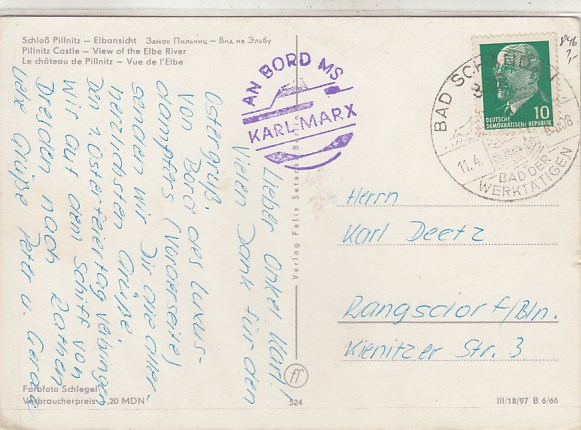 Schloß Pillnitz — Elbansicht Замок Пильниц — Вид на Эльбу
Pillnitz Castle — View of the Elbe River
Le château de Pillnitz — Vue de l'Elbe
AN BORD MS
KARL-MARX
BAD SCHANDAU
11.4.
BAD DER
WERKTÄTIGEN
10
DEUTSCHE
DEMOKRATISCHE REPUBLIK
Lieber Onkel Karl!
Vielen Dank für den
Ostergruß.
Von Bord des Luxus-
dampfers (Vorderseite)
senden wir Dir die aller-
herzlichsten Grüße.
Den 1. Osterfeiertag verbringen
wir auf dem Schiff von
Dresden nach Rathen
Grüße Peter u. Gerda
Herrn
Karl Deetz
Rangsdorf/Bln.
Kienitzer Str. 3
Verlag Felix Setecki
Farbfoto Schlegel
Verbraucherpreis -,20 MDN
524
III/18/97 B 6/66